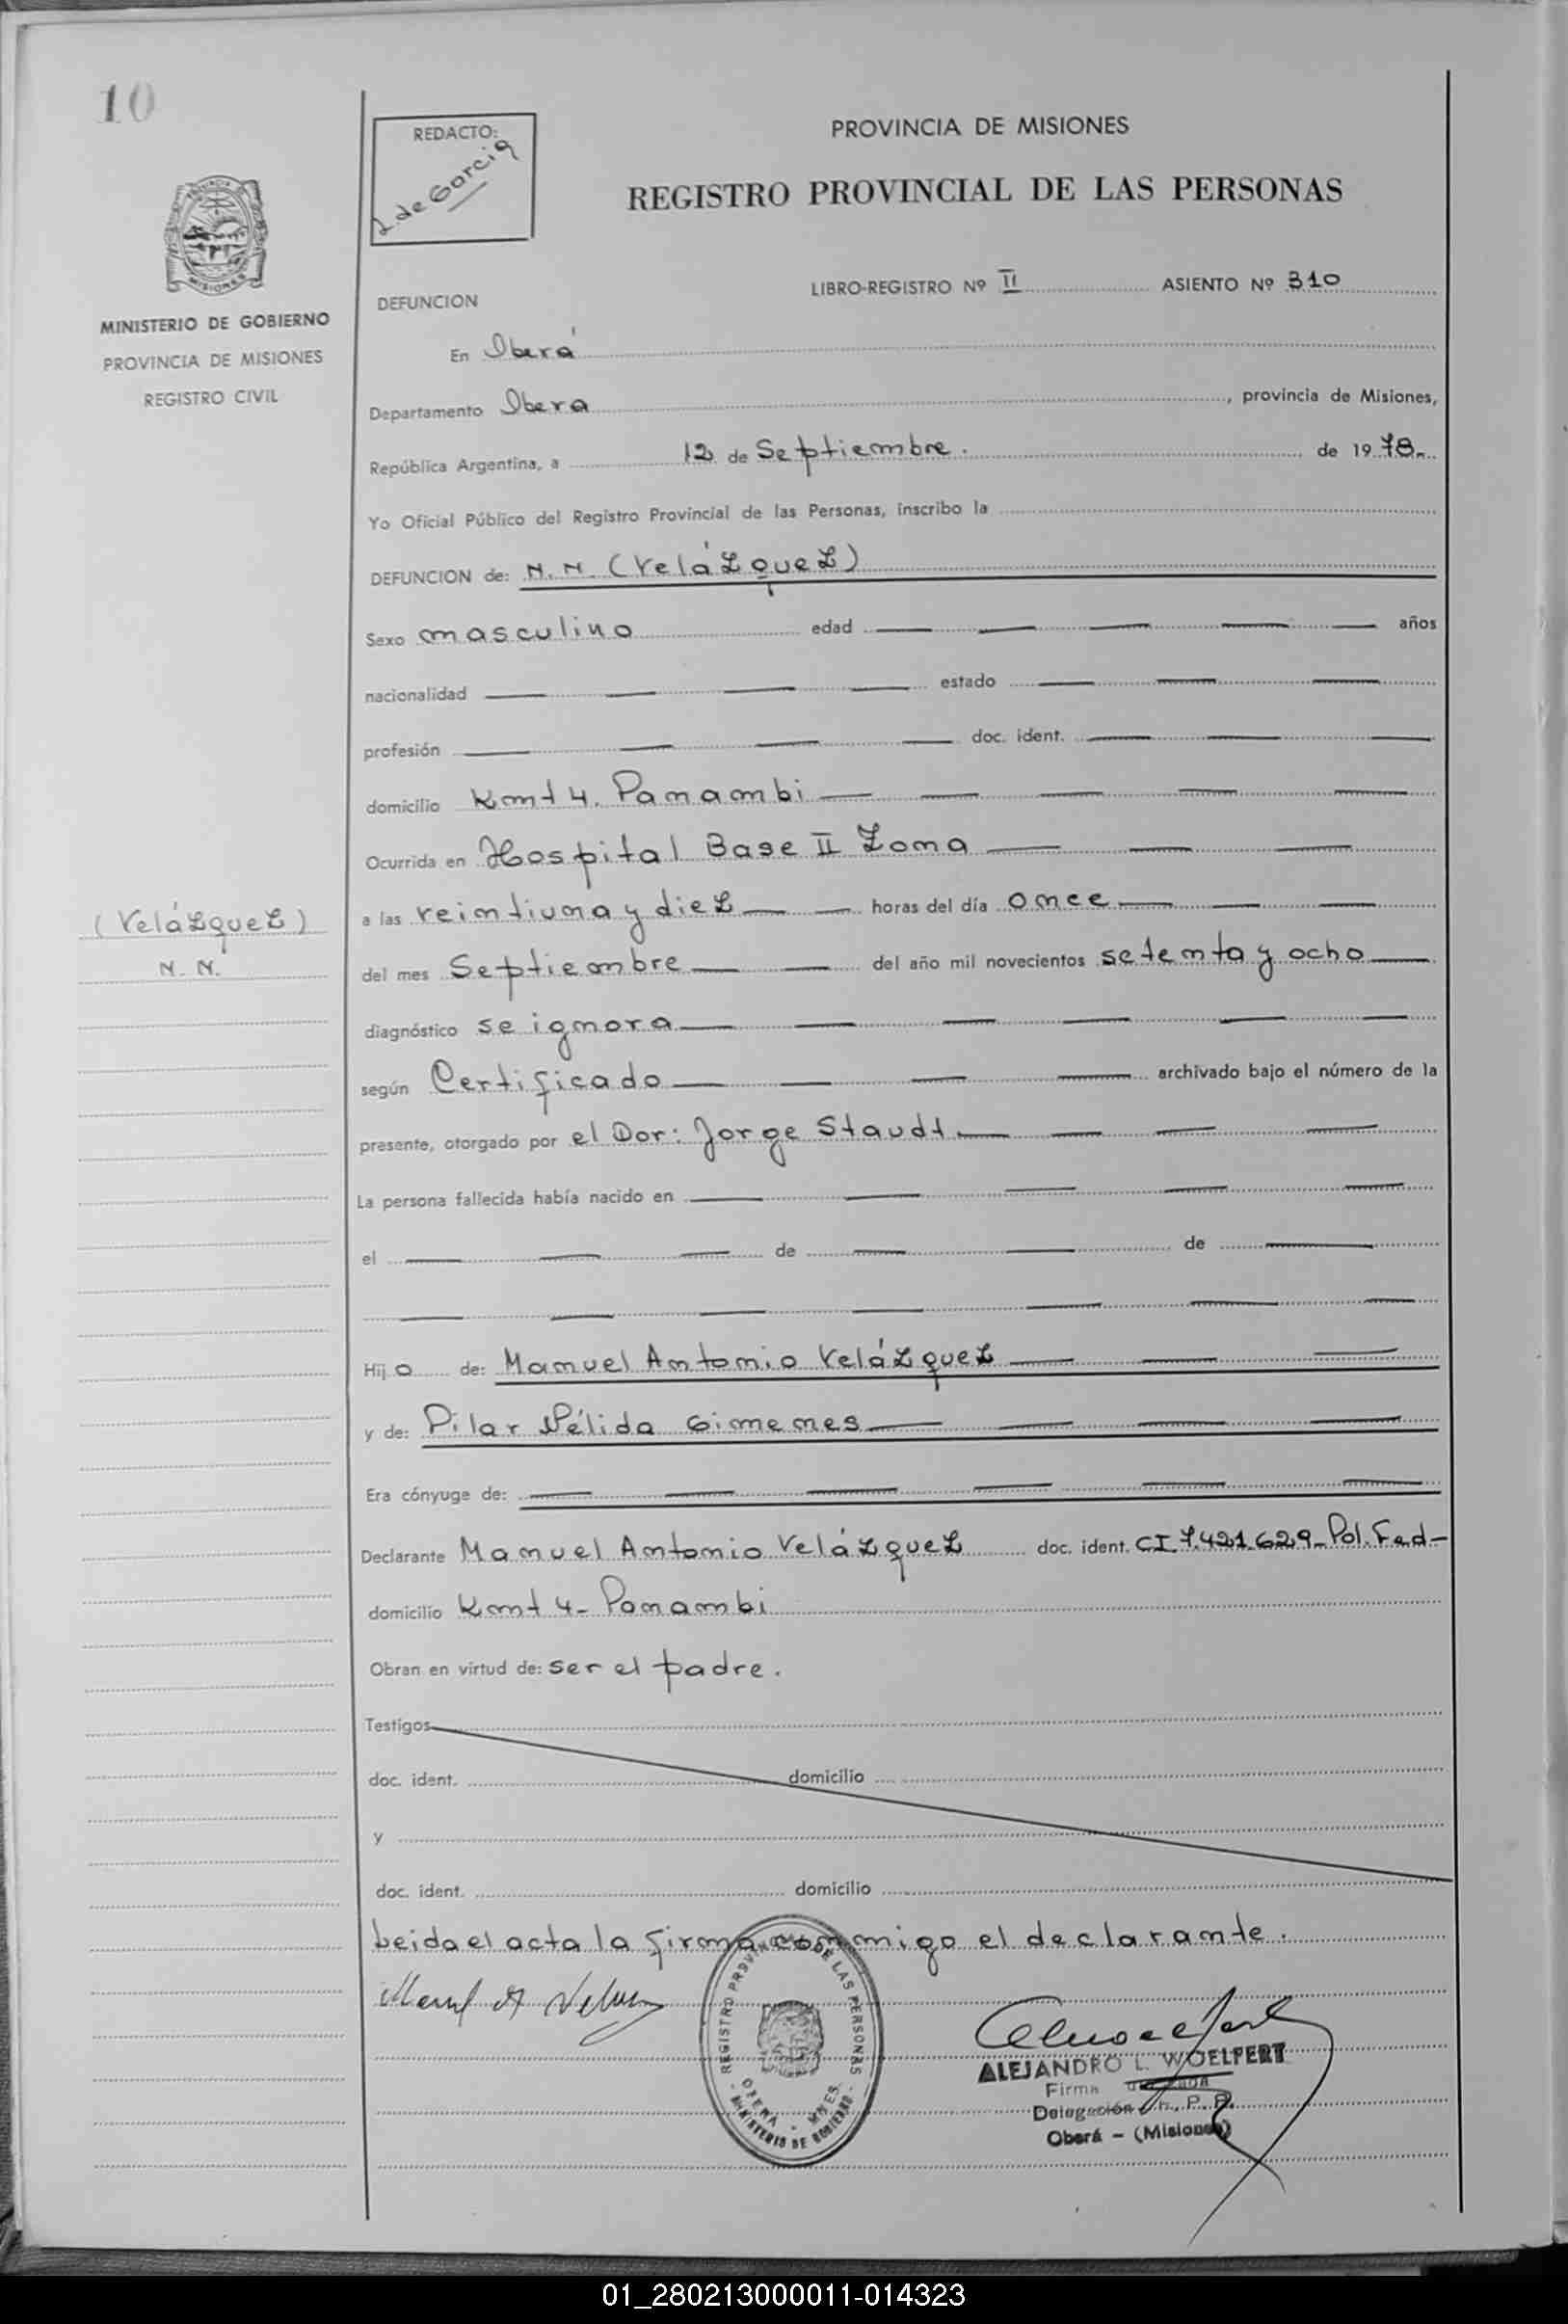 10
REDACTO:
L. de Garcia
PROVINCIA DE MISIONES
REGISTRO PROVINCIAL DE LAS PERSONAS
MINISTERIO DE GOBIERNO
PROVINCIA DE MISIONES
REGISTRO CIVIL
LIBRO-REGISTRO Nº II ASIENTO Nº 310
DEFUNCION
En Oberá
Departamento Obera, provincia de Misiones,
República Argentina, a 12 de Septiembre. de 1978.
Yo Oficial Público del Registro Provincial de las Personas, inscribo la
DEFUNCION de: N. N. (Velázquez)
Sexo masculino edad años
nacionalidad estado
profesión doc. ident.
domicilio Kmt 4. Panambi
Ocurrida en Hospital Base II Zona
(Velázquez)
N. N.
a las veintiuna y diez horas del día once
del mes Septiembre del año mil novecientos setenta y ocho
diagnóstico se ignora
según Certificado archivado bajo el número de la
presente, otorgado por el Dor: Jorge Staudt
La persona fallecida había nacido en
el de de
Hijo de: Manuel Antonio Velázquez
y de: Pilar Nélida Gimenes
Era cónyuge de:
Declarante Manuel Antonio Velázquez doc. ident. CI.7.421.629_Pol.Fed-
domicilio Kmt 4- Panambi
Obran en virtud de: ser el padre.
Testigos
doc. ident. domicilio
y
doc. ident. domicilio
Leida el acta la firma conmigo el declarante.
REGISTRO PROVINCIAL DE LAS PERSONAS
OBERA - MNES.
MINISTERIO DE GOBIERNO
ALEJANDRO L. WOELFERT
Firma
Delegación R. P. P.
Oberá - (Misiones)
01_280213000011-014323